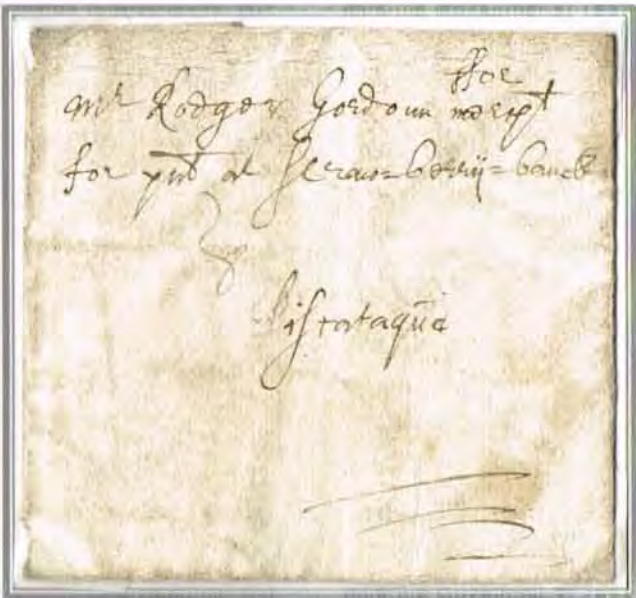 ffor
Mr Rodger Gordoun merct
for pnt at Straw=berrij=banck
Piscataqūa